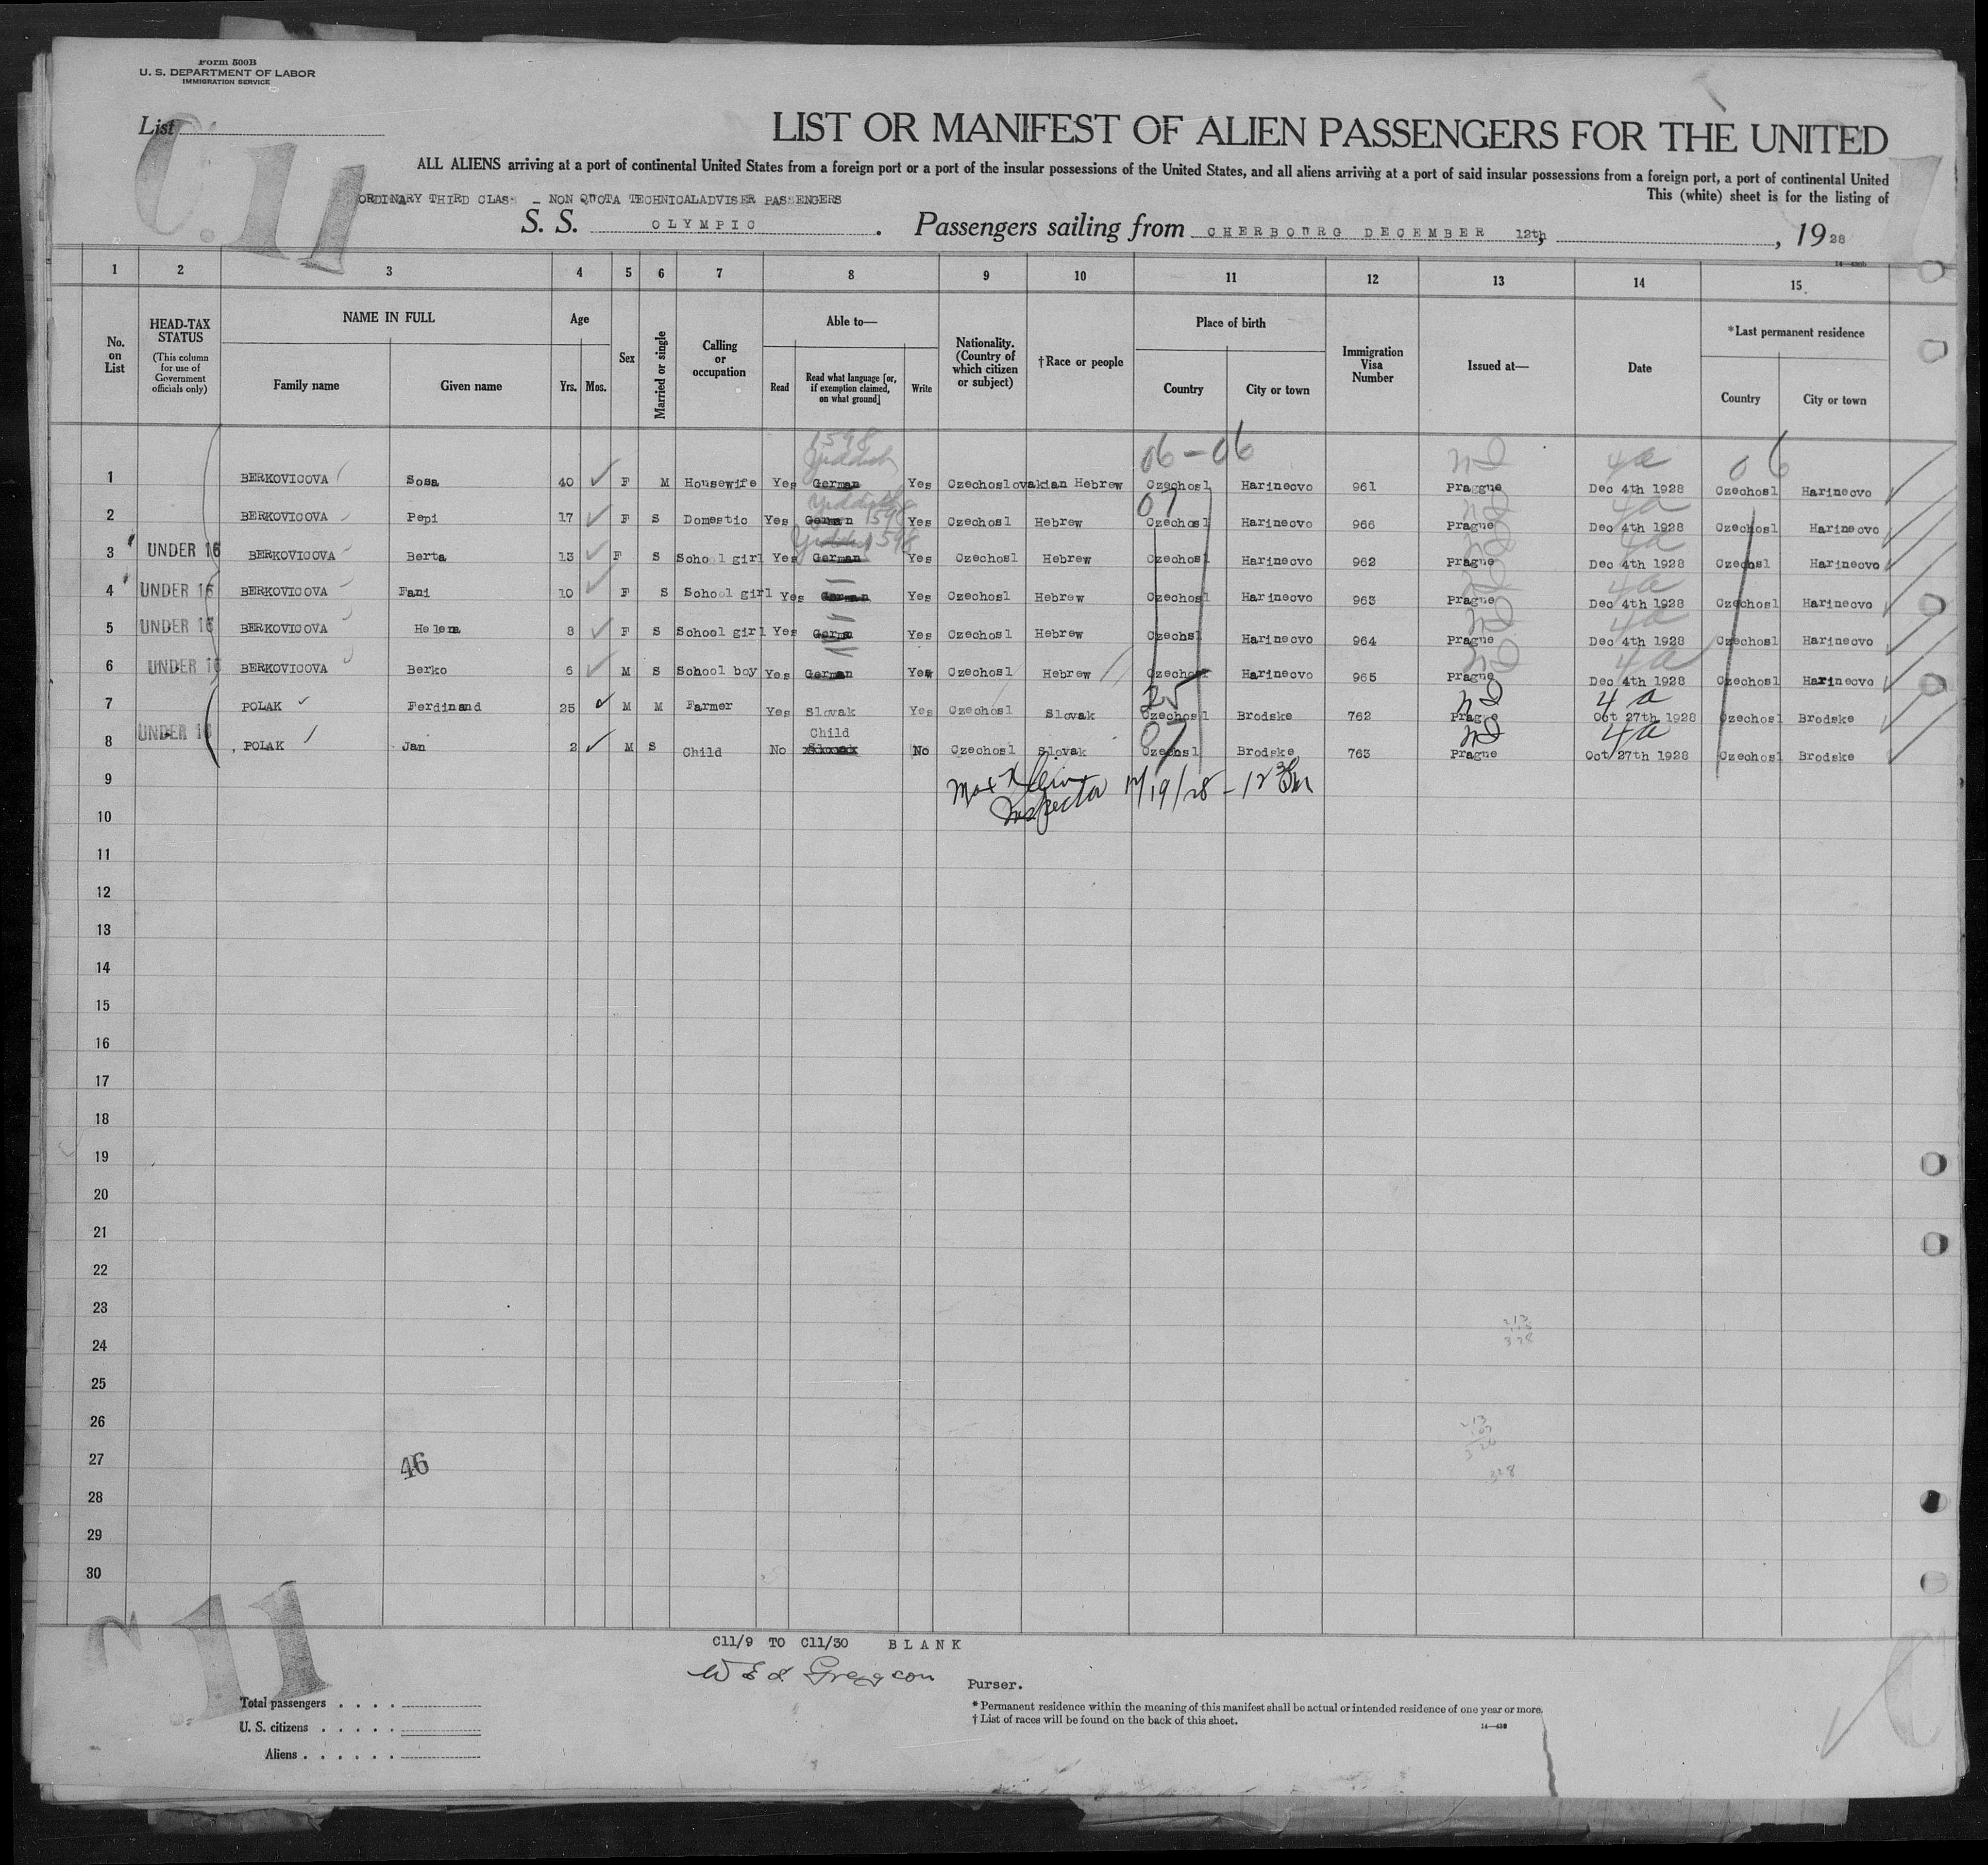 Form 500B
U. S. DEPARTMENT OF LABOR
IMMIGRATION SERVICE
List
C.11
LIST OR MANIFEST OF ALIEN PASSENGERS FOR THE UNITED
ALL ALIENS arriving at a port of continental United States from a foreign port or a port of the insular possessions of the United States, and all aliens arriving at a port of said insular possessions from a foreign port, a port of continental United
This (white) sheet is for the listing of
ORDINARY THIRD CLASS — NON QUOTA TECHNICALADVISER PASSENGERS
S. S. OLYMPIC. Passengers sailing from CHERBOURG DECEMBER 12th, , 1928
1 2 3 4 5 6 7 8 9 10 11 12 13 14 15
No. on List
HEAD-TAX STATUS (This column for use of Government officials only)
NAME IN FULL
Family name Given name
Age
Yrs. Mos.
Sex
Married or single
Calling or occupation
Able to—
Read
Read what language [or, if exemption claimed, on what ground]
Write
Nationality. (Country of which citizen or subject)
†Race or people
Place of birth
Country City or town
Immigration Visa Number
Issued at—
Date
*Last permanent residence
Country City or town
1598 06-06 nd 4a 06
Yiddish
1 BERKOVICOVA Sosa 40 F M Housewife Yes German Yes Czechoslovakian Hebrew Czechosl Harinecvo 961 Praggue Dec 4th 1928 Czechosl Harinecvo
Yiddish 1598 07 nd 4a
2 BERKOVICOVA Pepi 17 F S Domestic Yes German Yes Czechosl Hebrew Czechosl Harinecvo 966 Prague Dec 4th 1928 Czechosl Harinecvo
Yiddish 1598 nd 4a
3 UNDER 16 BERKOVICOVA Berta 13 F S School girl Yes German Yes Czechosl Hebrew Czechosl Harinecvo 962 Prague Dec 4th 1928 Czechosl Harinecvo
" nd 4a
4 UNDER 16 BERKOVICOVA Fani 10 F S School girl Yes German Yes Czechosl Hebrew Czechosl Harinecvo 963 Prague Dec 4th 1928 Czechosl Harinecvo
" nd 4a
5 UNDER 16 BERKOVICOVA Helena 8 F S School girl Yes German Yes Czechosl Hebrew Czechsl Harinecvo 964 Prague Dec 4th 1928 Czechosl Harinecvo
" nd 4a
6 UNDER 16 BERKOVICOVA Berko 6 M S School boy Yes German Yes Czechosl Hebrew Czechosl Harinecvo 965 Prague Dec 4th 1928 Czechosl Harinecvo
25 nd 4a
7 POLAK Ferdinand 25 M M Farmer Yes Slovak Yes Czechosl Slovak Czechosl Brodske 762 Prague Oct 27th 1928 Czechosl Brodske
Child 07 nd 4a
8 UNDER 16 POLAK Jan 2 M S Child No Slovak No Czechosl Slovak Czechsl Brodske 763 Prague Oct 27th 1928 Czechosl Brodske
9
Max Klein
Inspector 12/19/28 - 12
10
11
12
13
14
15
16
17
18
19
20
21
22
23
24
25
26
27
46
28
29
30
C11
C11/9 TO C11/30 BLANK
Purser.
Total passengers . . . .
U. S. citizens . . . . .
Aliens . . . . . .
* Permanent residence within the meaning of this manifest shall be actual or intended residence of one year or more.
† List of races will be found on the back of this sheet.